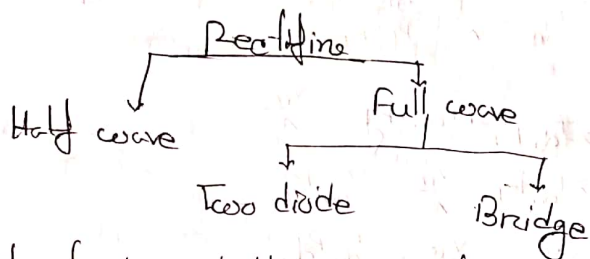 Rectifire
Half wave
Full wave
Two diode
Bridge